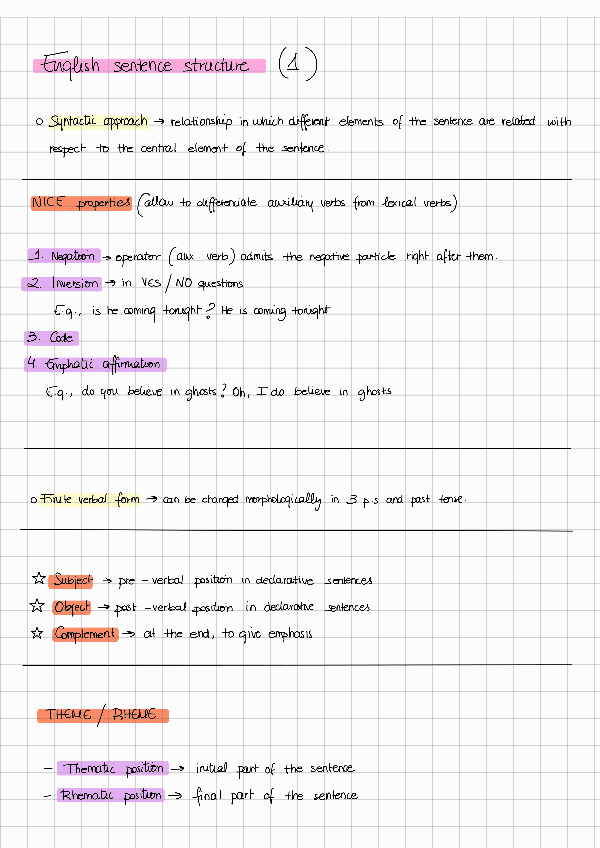 English sentence structure (1)
○ Syntactic approach → relationship in which different elements of the sentence are related with
respect to the central element of the sentence.
NICE properties (allow to differenciate auxiliary verbs from lexical verbs)
1. Negation → operator (aux. verb) admits the negative particle right after them.
2. Inversion → in YES / NO questions
E.g., is he coming tonight? He is coming tonight
3. Code
4. Emphatic affirmation
E.g., do you believe in ghosts? Oh, I do believe in ghosts
○ Finite verbal form → can be changed morphologically in 3 p.s and past tense.
☆ Subject → pre-verbal position in declarative sentences
☆ Object → post-verbal position in declarative sentences
☆ Complement → at the end, to give emphasis
THEME / RHEME
- Thematic position → initial part of the sentence
- Rhematic position → final part of the sentence